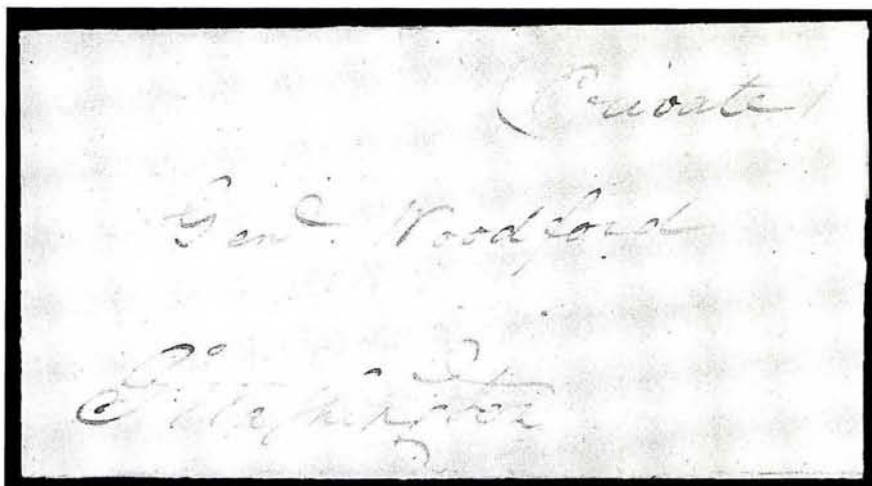 (Private)
Genl. Woodford
G: Washington